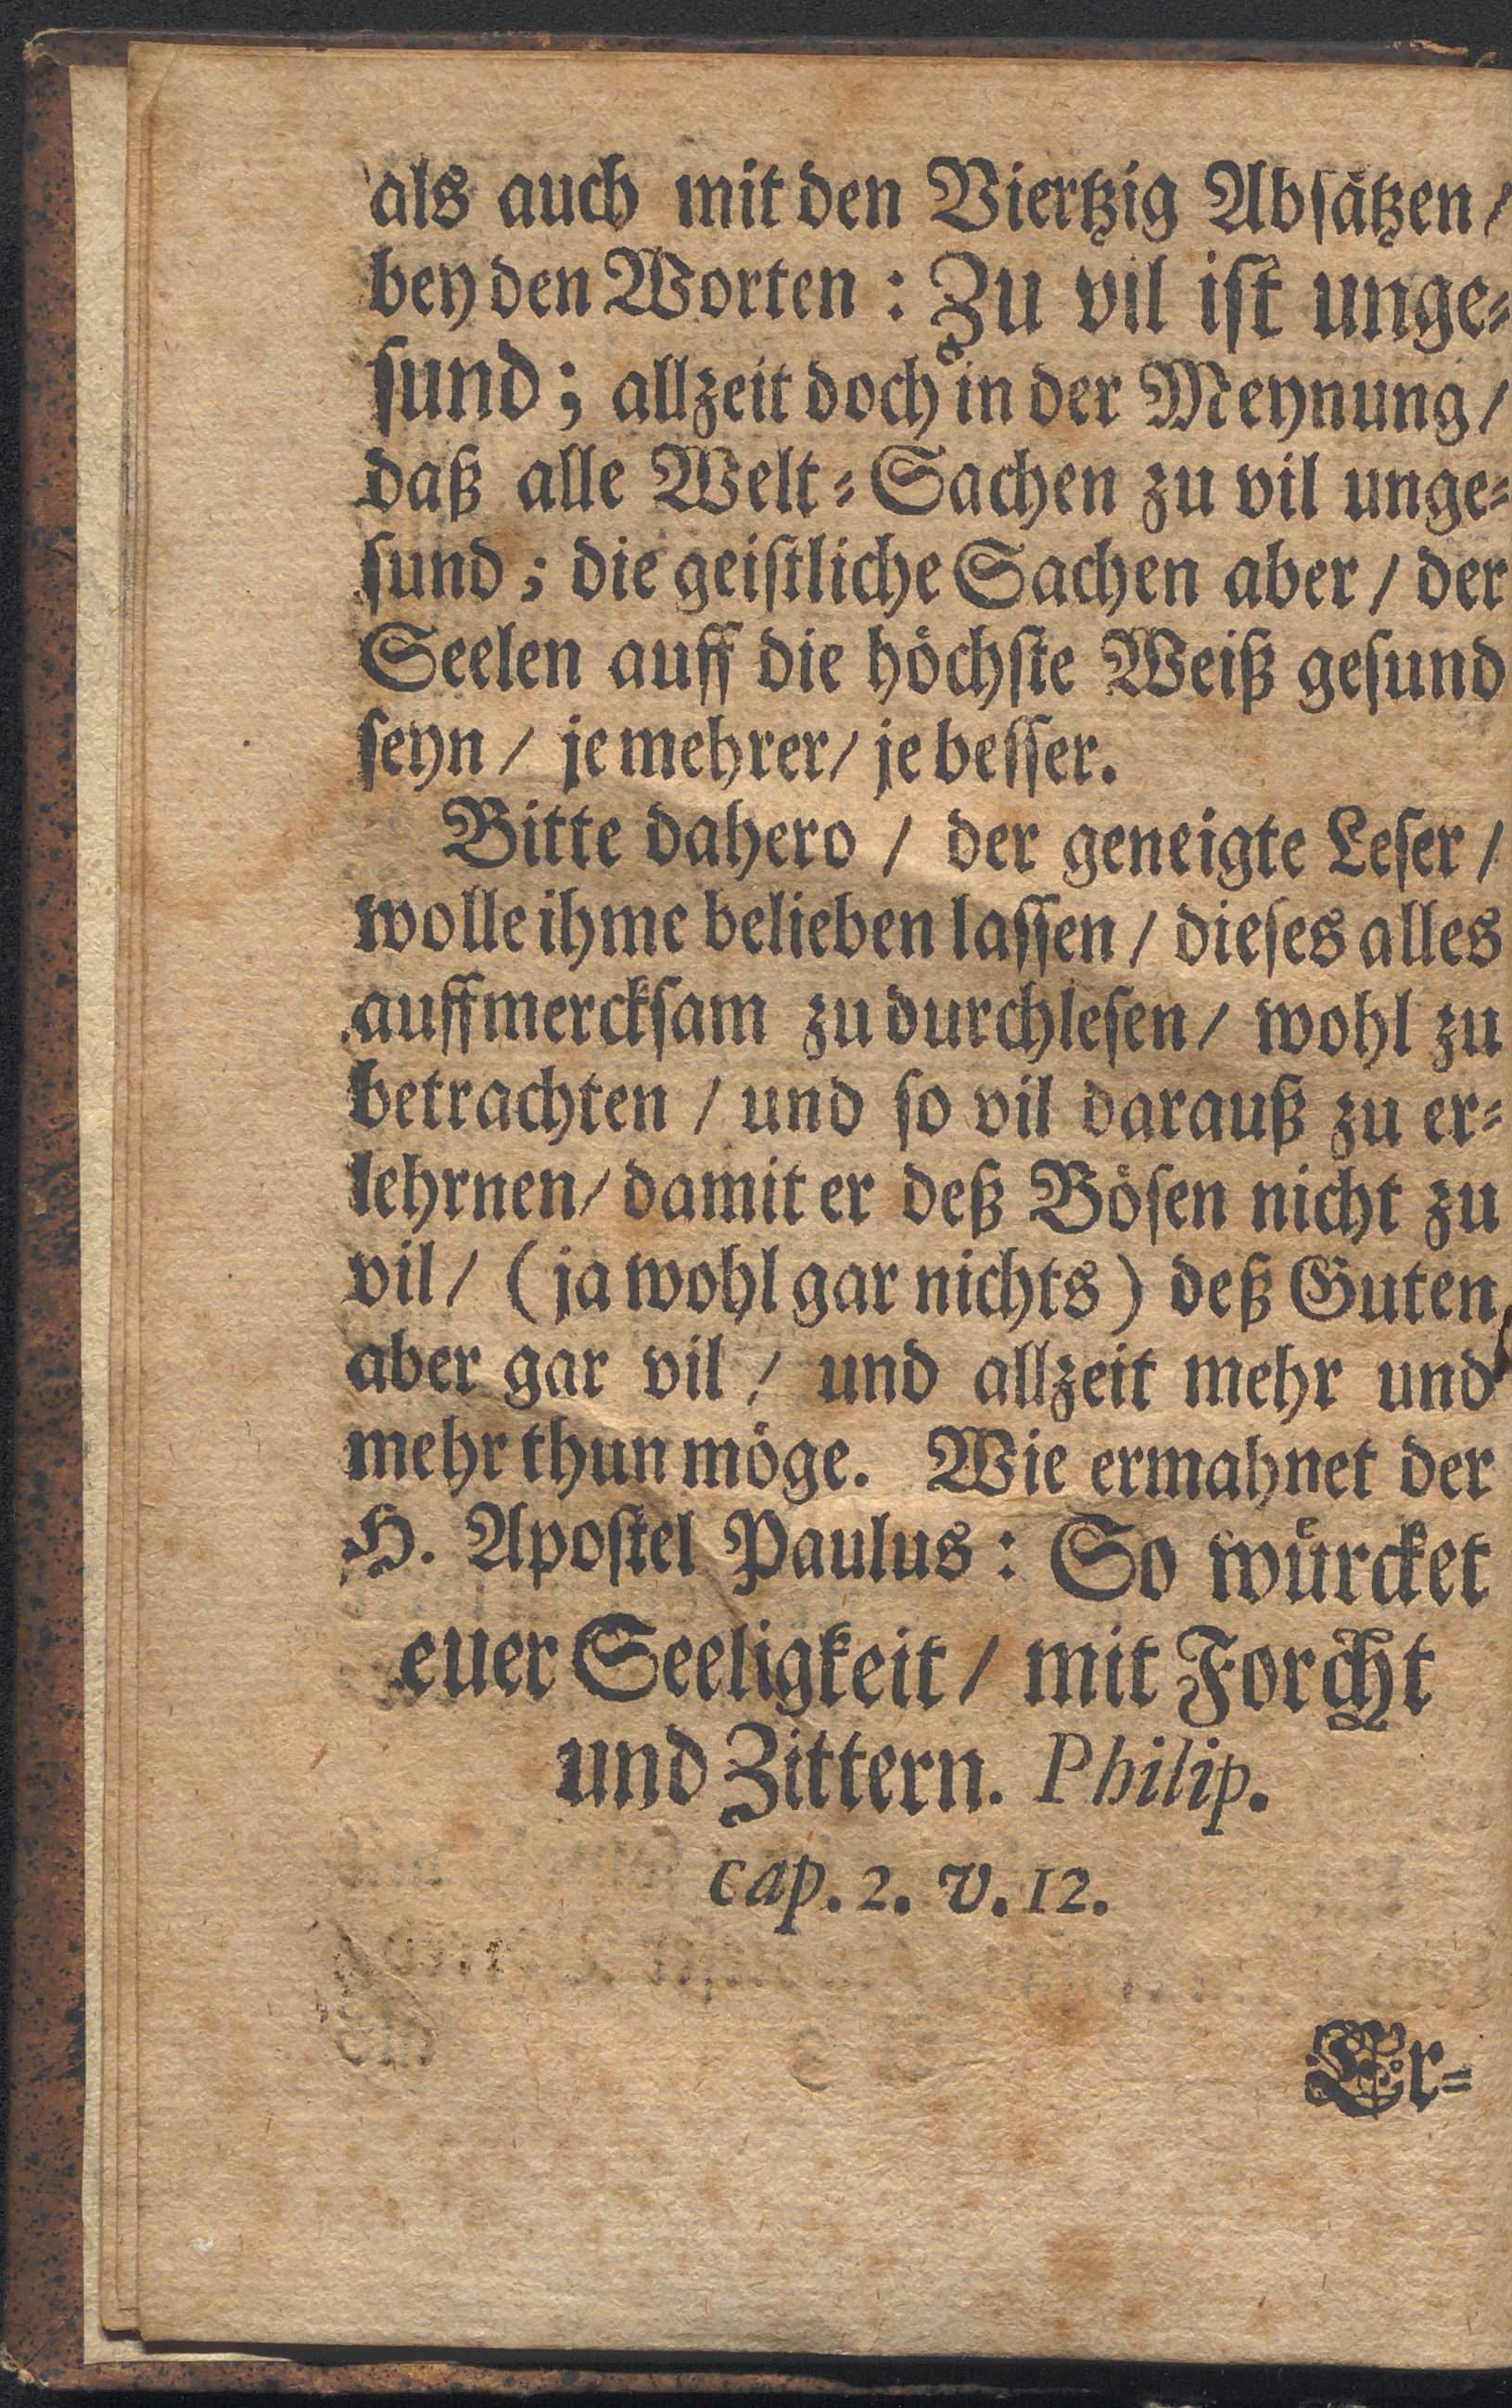 als auch mit den Viertzig Absätzen /
bey den Worten : Zu vil ist unge-
sund ; allzeit doch in der Meynung /
daß alle Welt-Sachen zu vil unge-
sund ; die geistliche Sachen aber / der
Seelen auff die höchste Weiß gesund
seyn / je mehrer / je besser.
Bitte dahero / der geneigte Leser /
wolle ihme belieben lassen / dieses alles
auffmercksam zu durchlesen / wohl zu
betrachten / und so vil darauß zu er-
lehrnen / damit er deß Bösen nicht zu
vil / ( ja wohl gar nichts ) deß Guten
aber gar vil / und allzeit mehr und
mehr thun möge. Wie ermahnet der
H. Apostel Paulus : So würcket
euer Seeligkeit / mit Forcht
und Zittern. Philip.
cap. 2. v. 12.
Er-